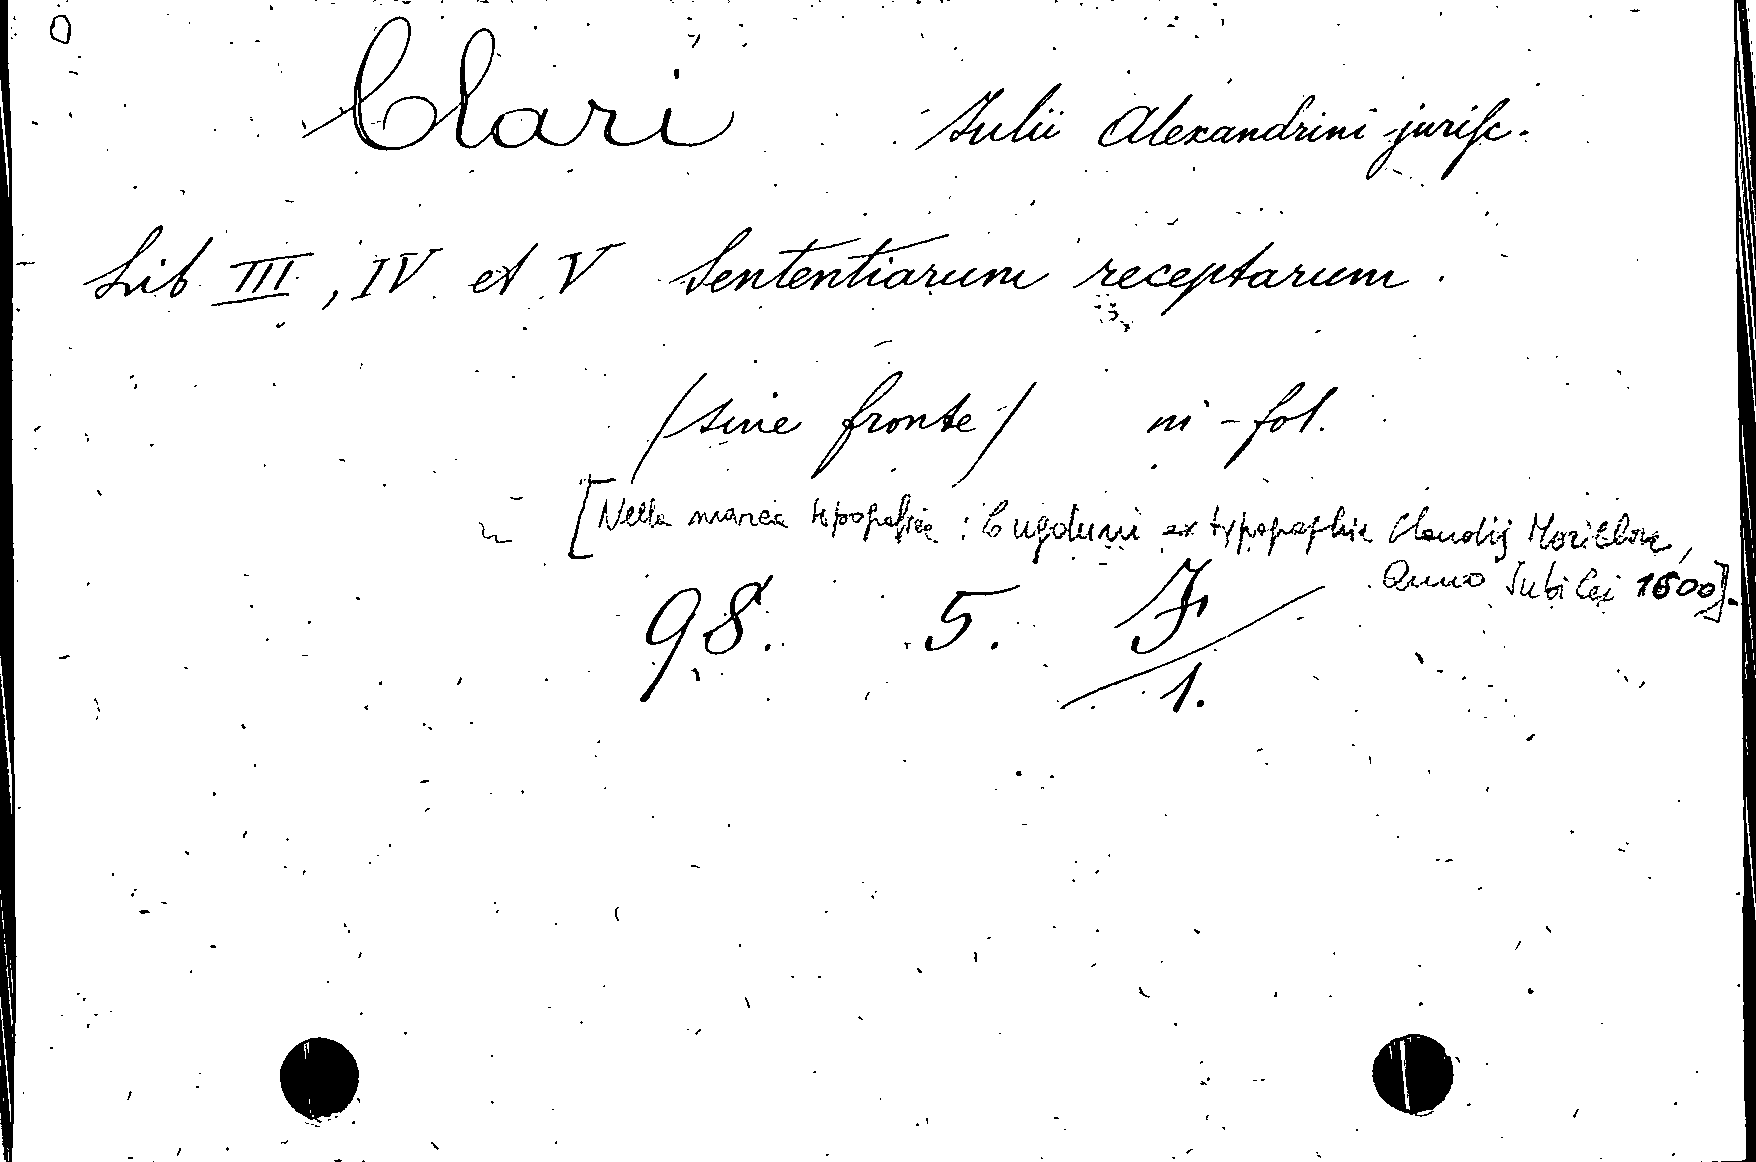 Clari Julii Alexandrini jurisc.
Lib III, IV et V Sententiarum receptarum.
(sine fronte) in-fol.
[Nella marca tipografica: Lugduni ex typographia Claudij Morillon,
Anno Jubilei 1600].
98. 5. F
1.